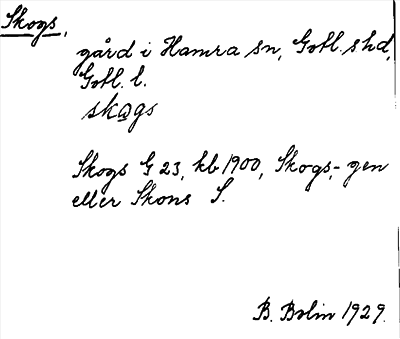 Skogs,
gård i Hamra sn, Gotl. s hd,
Gotl. l.
skogs
Skogs G 23, kb 1900, Skogs, -gen
eller Skons S.
B. Bolin 1929.